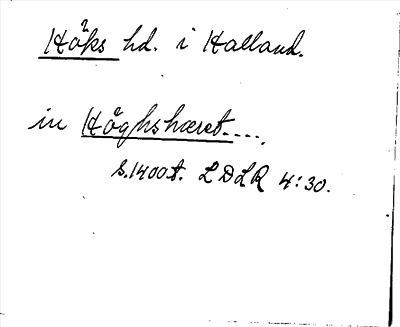 Höks hd. i Halland.
in Höghshæret....
s.1400t. LDLR 4:30.